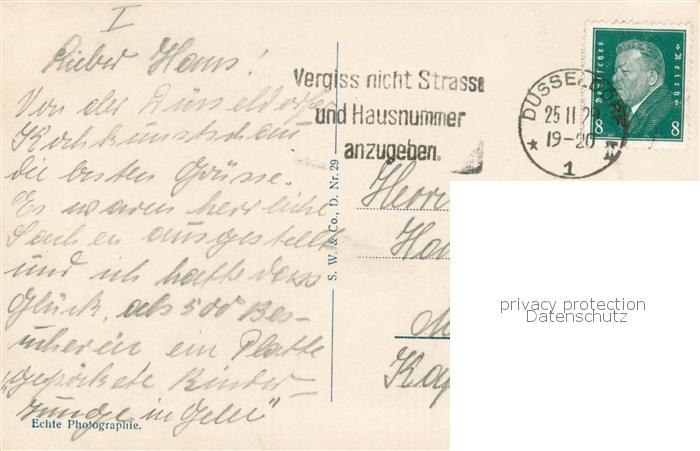 I
Lieber Hans!
Von der Düsseldorfer
Kochkunstschau
die besten Grüsse.
Es waren herrliche
Sachen ausgestellt
und ich hatte das
Glück, als 500 Bes-
ucherin ein Platte
"gepökelte Rinder-
zunge in Gelee"
Echte Photographie.
S. W. & Co., D. Nr. 29
Vergiss nicht Strasse
und Hausnummer
anzugeben.
DÜSSELDORF
25 11 2
19-20
* 1
Deutsches Reich
8 8
Herrn
privacy protection
Datenschutz